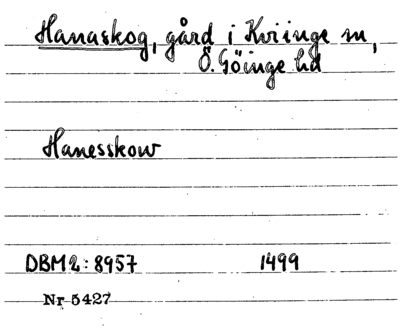 Hanaskog, gård i Kviinge sn,
Ö. Göinge hd
Hanesskow
DBM2: 8957 1499
Nr 5427